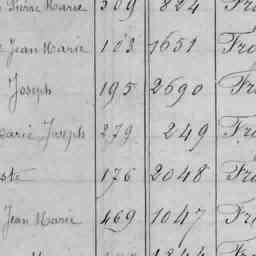 Pierre Marie 309 824 Fra
Jean Marie 103 1651 Fro
Joseph 195 2690 Fra
Marie Joseph 279 249 Fro
176 2048 Fro
Jean Marie 469 1047 Fr